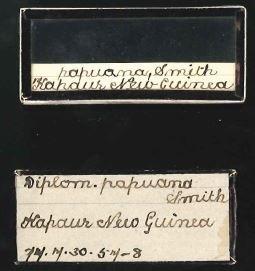 papuana, Smith
Kapaur New Guinea
Diplom. papuana
Smith
Kapaur New Guinea
97.7.30.57-8